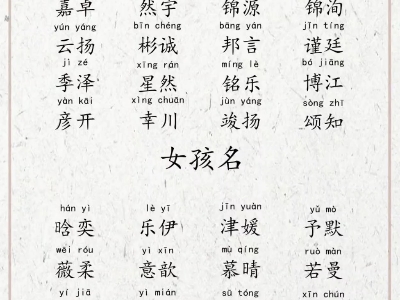 嘉卓 然宇 锦源 锦洵
yún yáng bīn chéng bāng yán jǐn tíng
云扬 彬诚 邦言 谨廷
jì zé xīng rán míng lè bó jiāng
季泽 星然 铭乐 博江
yàn kāi xìng chuān jùn yáng sòng zhī
彦开 幸川 竣扬 颂知
女孩名
hán yì lè yī jīn yuàn yǔ mò
晗奕 乐伊 津媛 予默
wēi róu yì xīn mù qíng ruò màn
薇柔 意歆 慕晴 若曼
yí jiā yì mián sū tóng xīn chún